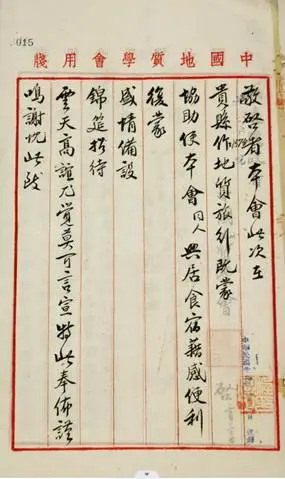 015
中國地質學會用牋
敬啓者本會此次在
貴縣作地質旅行既蒙
協助使本會同人興居食宿藉感便利
復蒙
盛情備設
錦筵招待
雲天高誼尤覺莫可言宣特此奉佈謹
鳴謝忱此致